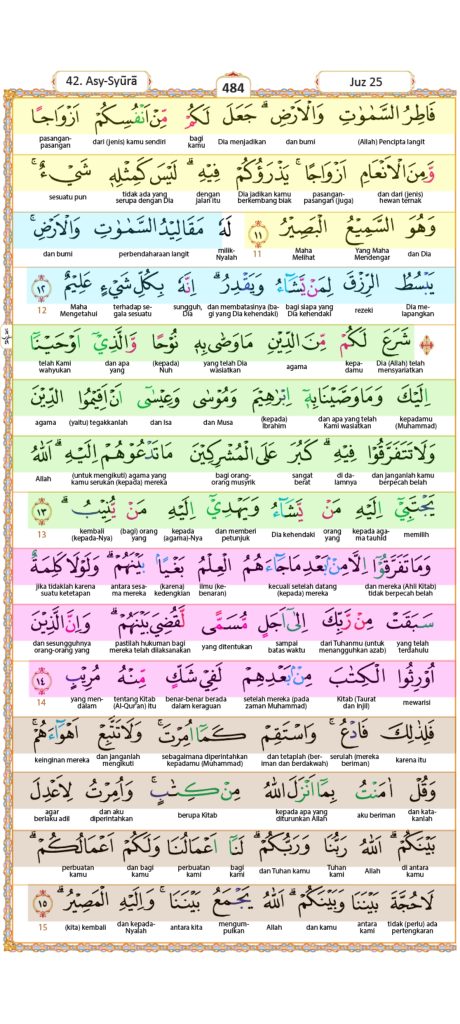 42. Asy-Syūrā
484
Juz 25
فَاطِرُ السَّمٰوٰتِ وَالْاَرْضِۗ جَعَلَ لَكُمْ مِّنْ اَنْفُسِكُمْ اَزْوَاجًا
(Allah) Pencipta langit dan bumi Dia menjadikan bagi kamu dari (jenis) kamu sendiri pasangan-pasangan
وَّمِنَ الْاَنْعَامِ اَزْوَاجًاۚ يَذْرَؤُكُمْ فِيْهِۗ لَيْسَ كَمِثْلِهٖ شَيْءٌۚ
dan dari (jenis) hewan ternak pasangan-pasangan (juga) Dia jadikan kamu berkembang biak dengan jalan itu tidak ada yang serupa dengan Dia sesuatu pun
وَهُوَ السَّمِيْعُ الْبَصِيْرُ ۝١١ لَهٗ مَقَالِيْدُ السَّمٰوٰتِ وَالْاَرْضِۚ
dan Dia Yang Maha Mendengar Maha Melihat 11 milik-Nyalah perbendaharaan langit dan bumi
يَبْسُطُ الرِّزْقَ لِمَنْ يَّشَاۤءُ وَيَقْدِرُۗ اِنَّهٗ بِكُلِّ شَيْءٍ عَلِيْمٌ ۝١٢
Dia me-lapangkan rezeki bagi siapa yang Dia kehendaki dan membatasinya (ba-gi yang Dia kehendaki) sungguh, Dia terhadap se-gala sesuatu Maha Mengetahui 12
۞ شَرَعَ لَكُمْ مِّنَ الدِّيْنِ مَا وَصّٰى بِهٖ نُوْحًا وَّالَّذِيْٓ اَوْحَيْنَآ
Dia (Allah) telah mensyariatkan kepa-damu agama yang telah Dia wasiatkan (kepada) Nuh dan apa yang telah Kami wahyukan
اِلَيْكَ وَمَا وَصَّيْنَا بِهٖٓ اِبْرٰهِيْمَ وَمُوْسٰى وَعِيْسٰٓى اَنْ اَقِيْمُوا الدِّيْنَ
kepadamu (Muhammad) dan apa yang telah Kami wasiatkan (kepada) Ibrahim dan Musa dan Isa (yaitu) tegakkanlah agama
وَلَا تَتَفَرَّقُوْا فِيْهِۗ كَبُرَ عَلَى الْمُشْرِكِيْنَ مَا تَدْعُوْهُمْ اِلَيْهِۗ اَللّٰهُ
dan janganlah kamu berpecah belah di da-lamnya sangat berat bagi orang-orang musyrik (untuk mengikuti) agama yang kamu serukan (kepada) mereka Allah
يَجْتَبِيْٓ اِلَيْهِ مَنْ يَّشَاۤءُ وَيَهْدِيْٓ اِلَيْهِ مَنْ يُّنِيْبُۗ ۝١٣
memilih kepada aga-ma tauhid orang yang Dia kehendaki dan memberi petunjuk kepada (agama)-Nya (bagi) orang yang kembali (kepada-Nya) 13
وَمَا تَفَرَّقُوْٓا اِلَّا مِنْۢ بَعْدِ مَا جَاۤءَهُمُ الْعِلْمُ بَغْيًاۢ بَيْنَهُمْۗ وَلَوْلَا كَلِمَةٌ
dan mereka (Ahli Kitab) tidak berpecah belah kecuali setelah datang (kepada) mereka ilmu (ke-benaran) (karena) kedengkian antara sesa-ma mereka jika tidaklah karena suatu ketetapan
سَبَقَتْ مِنْ رَّبِّكَ اِلٰٓى اَجَلٍ مُّسَمًّى لَّقُضِيَ بَيْنَهُمْۗ وَاِنَّ الَّذِيْنَ
yang telah terdahulu dari Tuhanmu (untuk menangguhkan azab) sampai batas waktu yang ditentukan pastilah hukuman bagi mereka telah dilaksanakan dan sesungguhnya orang-orang yang
اُوْرِثُوا الْكِتٰبَ مِنْۢ بَعْدِهِمْ لَفِيْ شَكٍّ مِّنْهُ مُرِيْبٍ ۝١٤
mewarisi Kitab (Taurat dan Injil) setelah mereka (pada zaman Muhammad) benar-benar berada dalam keraguan tentang Kitab (Al-Qur'an) itu yang men-dalam 14
فَلِذٰلِكَ فَادْعُۚ وَاسْتَقِمْ كَمَآ اُمِرْتَۚ وَلَا تَتَّبِعْ اَهْوَاۤءَهُمْۚ
karena itu serulah (mereka beriman) dan tetaplah (ber-iman dan berdakwah) sebagaimana diperintahkan kepadamu (Muhammad) dan janganlah mengikuti keinginan mereka
وَقُلْ اٰمَنْتُ بِمَآ اَنْزَلَ اللّٰهُ مِنْ كِتٰبٍۚ وَاُمِرْتُ لِاَعْدِلَ
dan kata-kanlah aku beriman kepada apa yang diturunkan Allah berupa Kitab dan aku diperintahkan agar berlaku adil
بَيْنَكُمْۗ اَللّٰهُ رَبُّنَا وَرَبُّكُمْۗ لَنَآ اَعْمَالُنَا وَلَكُمْ اَعْمَالُكُمْۗ
di antara kamu Allah Tuhan kami dan Tuhan kamu bagi kami perbuatan kami dan bagi kamu perbuatan kamu
لَا حُجَّةَ بَيْنَنَا وَبَيْنَكُمْۗ اَللّٰهُ يَجْمَعُ بَيْنَنَاۚ وَاِلَيْهِ الْمَصِيْرُۗ ۝١٥
tidak (perlu) ada pertengkaran antara kami dan kamu Allah mengum-pulkan antara kita dan kepada-Nyalah (kita) kembali 15